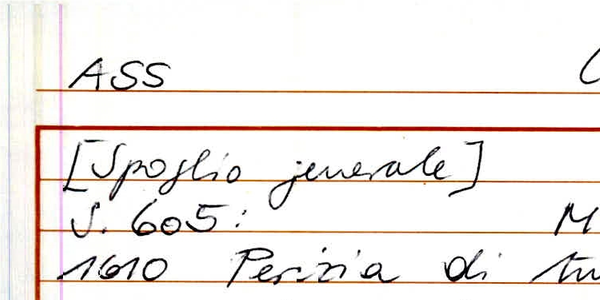 ASS
[Spoglio generale]
S. 605: M
1610 Perizia di